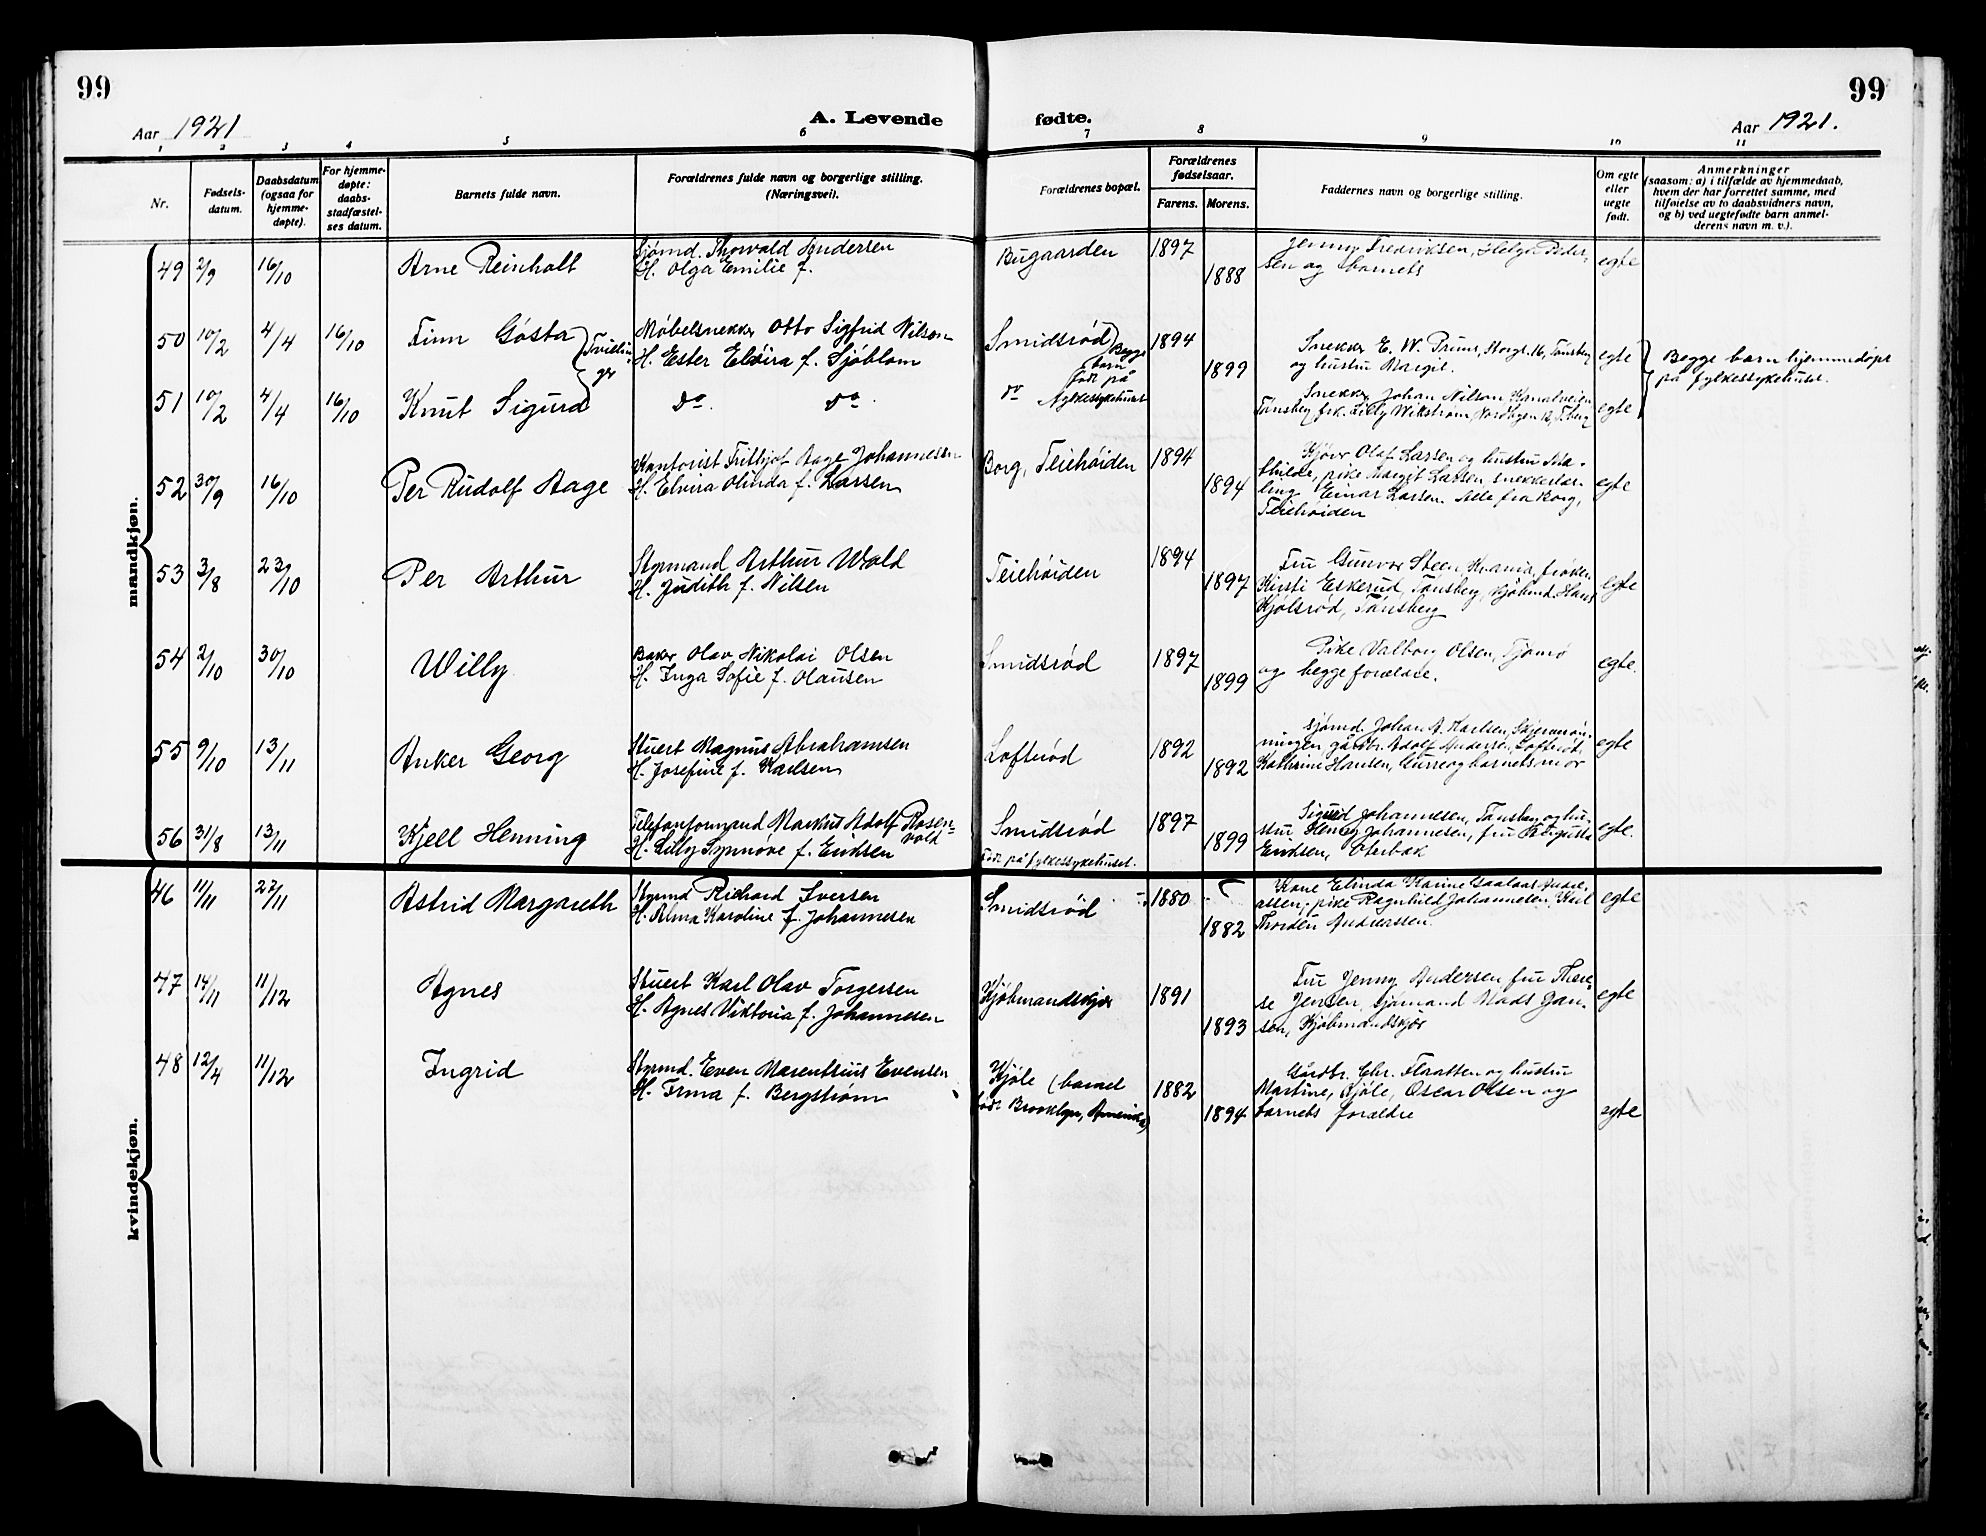 99
99
Aar 1921
A. Levende fødte.
Aar 1921.
1 2 3 4 5 6 7 8 9 10 11
Nr.
Fødsels-
datum.
Daabsdatum
(ogsaa for
hjemme-
døpte).
For hjemme-
døpte:
daabs-
stadfæstel-
ses datum.
Barnets fulde navn.
Forældrenes fulde navn og borgerlige stilling.
(Næringsvei).
Forældrenes bopæl.
Forældrenes
fødselsaar.
Farens. Morens.
Faddernes navn og borgerlige stilling.
Om egte
eller
uegte
født.
Anmerkninger
(saasom: a) i tilfælde av hjemmedaab,
hvem der har forrettet samme, med
tilføielse av to daabsvidners navn,
og b) ved uegtefødte barn anmel-
derens navn m. v.).
mandkjøn.
49 2/9 16/10 Arne Reinholt
Sjømd. Thorvald Andersen
H. Olga Emilie f.
Bugaarden 1897 1888
Jenny Fredriksen, Helga Peder-
sen og barnets
egte
50 10/2 4/4 16/10 Finn Gösta
Tvillin-
ger
Møbelsnekker Otto Sigfrid Nilson
H. Ester Elvira f. Sjöblom
Smidsrød 1894 1899
Begge
barn
født på
fylkessykehuset
Snekker E. W. Bruns, Storgt. 16, Tønsberg
og hustru Margit.
egte
Begge barn hjemmedøpt
på fylkessykehuset.
51 10/2 4/4 16/10 Knut Sigurd
do. do
do
Snekker Johan Nilson
Tønsberg frk. Lilly Wikstrøm, Nordbyen 12, T.berg
egte
52 30/9 16/10 Per Rudolf Aage
Kontorist Frithjof Aage Johannesen
H. Elvira Olinda f. Larsen
Borg, Teiehøiden 1894 1894
Kjører Olaf Larsen og hustru Ma-
thilde, pike Margit Larsen snekkerlær-
ling Einar Larsen. Alle fra Borg,
Teiehøiden
egte
53 3/8 23/10 Per Arthur
Styrmand Arthur Wold
H. Judith f. Nilsen
Teiehøiden 1894 1897
Fru Gunvor Steen, Kr.ania, frøken
Kirsti Eskerud, Tønsberg, kjøbmd. Hans
Kjølsrød, Tønsberg
egte
54 2/10 30/10 Willy
Baker Olav Nikolai Olsen
H. Inga Sofie f. Olausen
Smidsrød 1897 1899
Pike Valborg Olsen, Tjømø
og begge forældre.
egte.
55 9/10 13/11 Anker Georg
Stuert Magnus Abrahamsen
H. Josefine f. Karlsen
Lofterød 1892 1892
Sjømd. Johan A. Karlsen,
gårdbr. Adolf Anderson, Lofterød,
Kathrine Hansen, Hurre og barnets mor
egte
56 31/8 13/11 Kjell Henning
Telefonformand Markus Adolf Rosen-
vold
H. Lilly Synnøve f. Eriksen
Smidsrød 1897 1899
Født på fylkessykehuset.
Sigurd Johannesen, Tønsberg og hu-
stru Henny Johannesen, fru Augusta
Eriksen, Oterbæk
egte.
kvindekjøn.
46 11/11 27/11 Astrid Margareth
Styrmd Richard Iversen
H. Alma Karoline f. Johannesen
Smidsrød 1880 1882
Kone Elinda Karine Gaalaas Andre-
assen, pike Ragnhild Johannesen, Karl
Thorden Andreassen.
egte
47 14/11 11/12 Agnes
Stuert Karl Olav Torgersen
H. Agnes Viktoria f. Johannesen
Kjøbmandskjær 1891 1893
Fru Jenny Andersen, fru There-
se Jensen, sjømand Mads Jan-
sen, Kjøbmandskjær
egte
48 12/4 11/12 Ingrid
Styrmd. Even Marentsius Evensen
H. Irma f. Bergstrøm
Kjøle (barnet
født Brooklyn, Amerika) 1882 1894
Gårdbr. Chr. Floratten og hustru
Martine, Kjøle, Oscar Olsen og
barnets forældre
egte